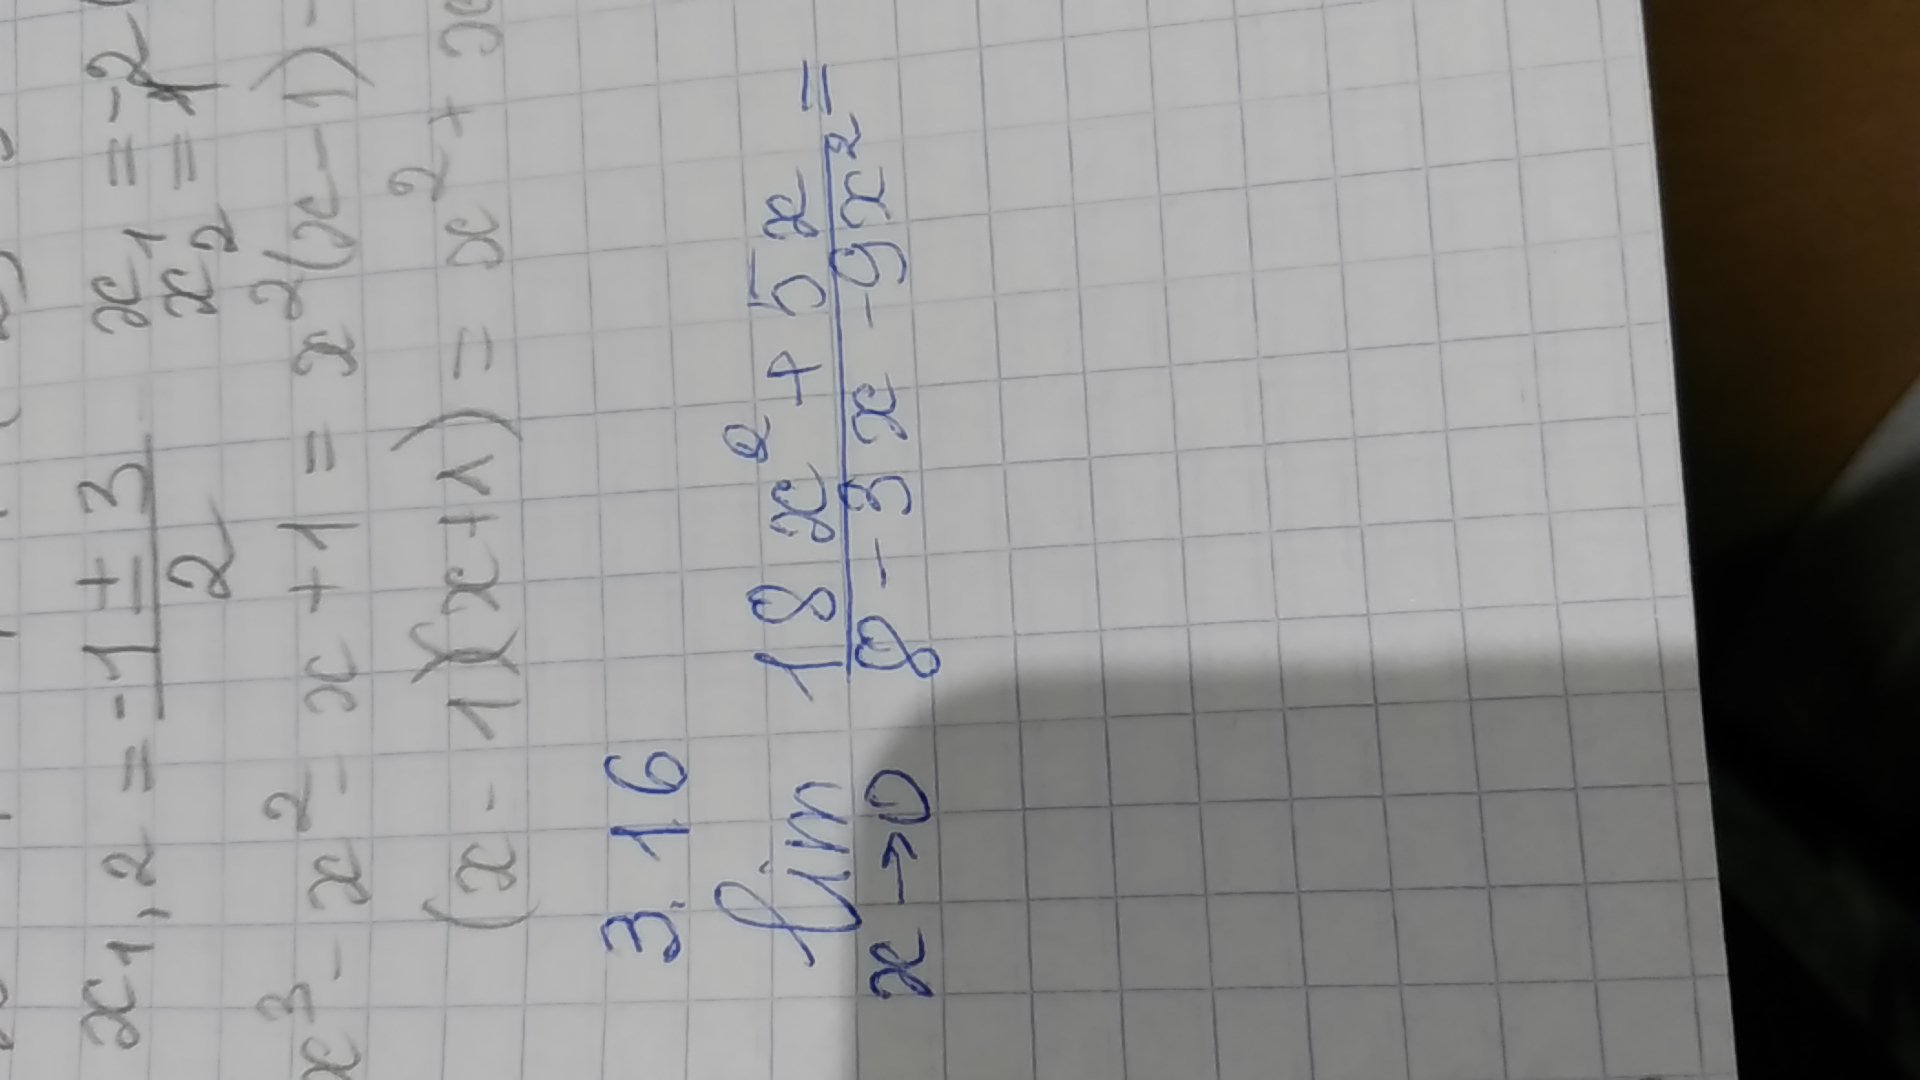 x₁,₂ = -1 ± 3 / 2 x₁ = -2
x₂ = 1
x³ - x² - x + 1 = x²(x - 1) -
(x - 1)(x + 1) = x² + x
3.16
lim x→0 18x² + 5x / 8 - 3x - 9x² =